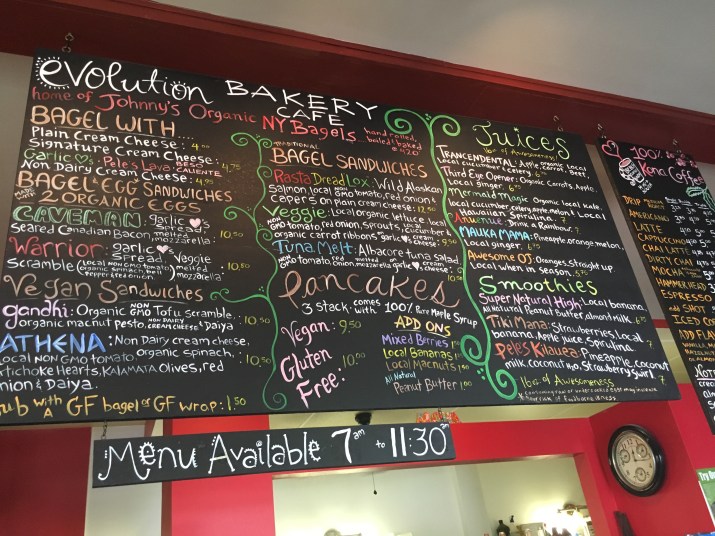 evolution BAKERY CAFE
home of Johnny's Organic NY Bagels
hand rolled, boiled & baked
BAGEL WITH....
Plain Cream Cheese: 4.00
Signature Cream Cheese:
Garlic ♡s: Pele's Lava: BESO CALIENTE 4.75
Non Dairy Cream Cheese: 4.95
BAGEL & EGG SANDWICHES
2 ORGANIC EGGS
CAVEMAN: garlic ♡ Spread,
Seared Canadian Bacon, melted mozzarella: 10.50
Warrior: garlic ♡ Spread, Veggie
Scramble (local NON GMO tomato, organic spinach, bell melted mozzarella 10.50
Vegan Sandwiches
gandhi: Organic NON GMO Tofu scramble,
organic macnut pesto, NON DAIRY CREAM CHEESE & Daiya 10.50
ATHENA: Non Dairy cream cheese,
Local NON GMO tomato, organic spinach,
Artichoke Hearts, KALAMATA Olives, red
onion & Daiya. 10.50
Sub WITH A GF bagel or GF wrap: 1.50
TRADITIONAL
BAGEL SANDWICHES
Rasta Dread Lox: Wild Alaskan
Salmon, local NON GMO tomato, red onion &
capers on plain cream cheese: 12.50
Veggie: Local organic lettuce, local
NON GMO tomato, red onion, Sprouts, local cucumber &
organic carrot ribbons, garlic ♡s cream cheese: 9.50
Tuna Melt: Albacore tuna salad
NON GMO tomato, red onion, melted mozzarella, garlic ♡s cream cheese: 10.50
Pancakes
3 stack. comes with 100% Pure Maple Syrup
Vegan: 9.50
Gluten Free: 10.00
ADD ONS
Mixed Berries
Local Bananas
Local Macnuts
All Natural
Peanut Butter 1.00
Juices
16oz of Awesomeness!
TRANCENDENTAL: Apple, organic Local
Local cucumber, celery. Carrot. Beet.
Third Eye Opener: Organic Carrots, Apple,
Local ginger. 6
Mermaid Magic Organic local kale,
Local cucumber, celery, apple, melon & Local
Hawaiian Spirulina. 7
Drink a Rainbow. 7
MAUKA MAMA: Pineapple, orange, melon,
Local ginger. 6
Awesome OJ: Oranges, straight up
Local when in season. 5.75
Smoothies
Super Natural High: Local banana,
All Natural Peanut Butter, almond milk. 6
Tiki Mana: Strawberries, local
Noni, apple juice, Spirulina. 7
Peles Kilauea: Pineapple, coconut
milk, coconut H2O, Strawberry Swirl. 7
16oz of Awesomeness
100% ♡
Kona Coffee
DRIP
AMERICANO
LATTE
CAPPUCCINO
DIRTY CHAI
MOCHA
HAMMERHEAD
ESPRESSO
ADD SHOT
ICED CO
Menu Available 7am to 11:30am